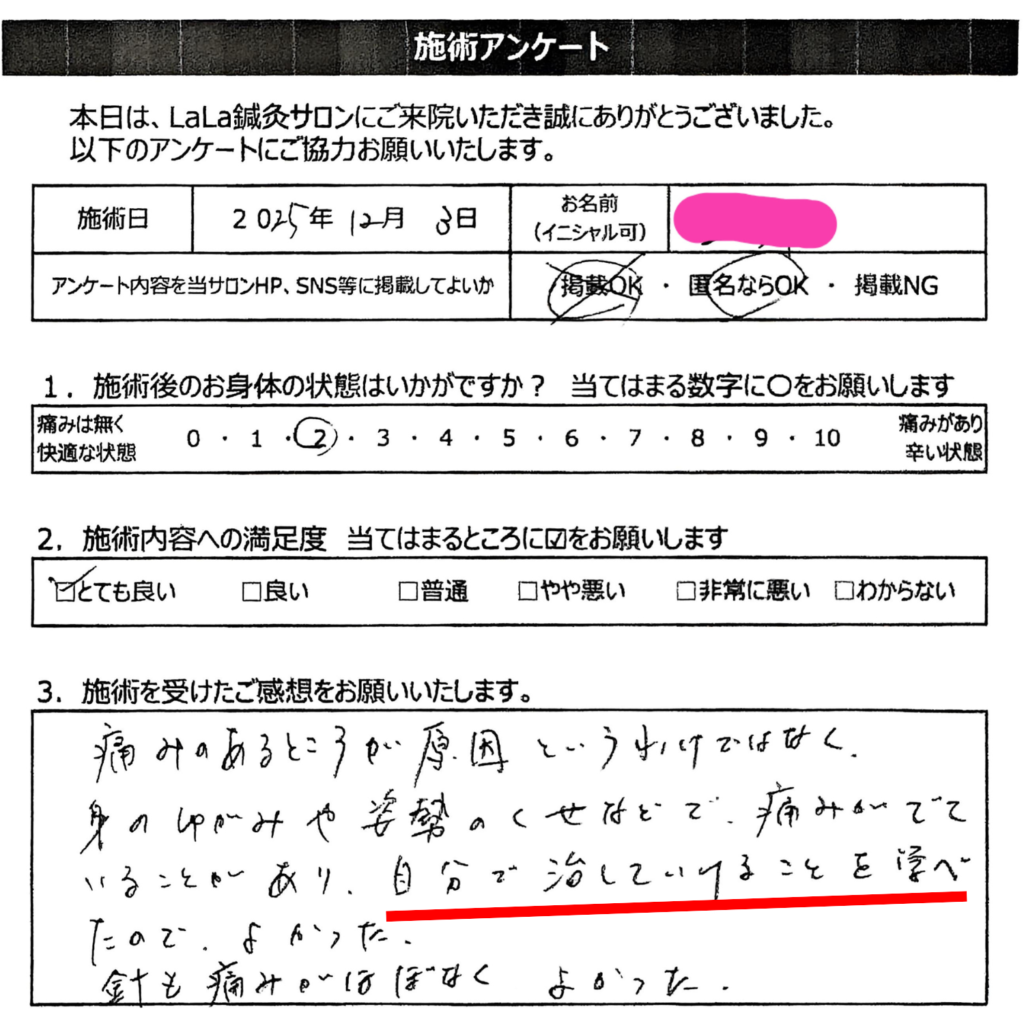 施術アンケート
本日は、LaLa鍼灸サロンにご来院いただき誠にありがとうございました。
以下のアンケートにご協力お願いいたします。
施術日 2025年 12月 3日 お名前 (イニシャル可)
アンケート内容を当サロンHP、SNS等に掲載してよいか 掲載OK ・ 匿名ならOK ・ 掲載NG
1. 施術後のお身体の状態はいかがですか? 当てはまる数字に○をお願いします
痛みは無く 快適な状態 0 ・ 1 ・ 2 ・ 3 ・ 4 ・ 5 ・ 6 ・ 7 ・ 8 ・ 9 ・ 10 痛みがあり 辛い状態
2. 施術内容への満足度 当てはまるところに☑をお願いします
☑とても良い □良い □普通 □やや悪い □非常に悪い □わからない
3. 施術を受けたご感想をお願いいたします。
痛みのあるところが原因というわけではなく、
身のゆがみや姿勢のくせなどで、痛みがでて
いることがあり、自分で治していけることを学べ
たので、よかった。
針も痛みがほぼなく よかった。